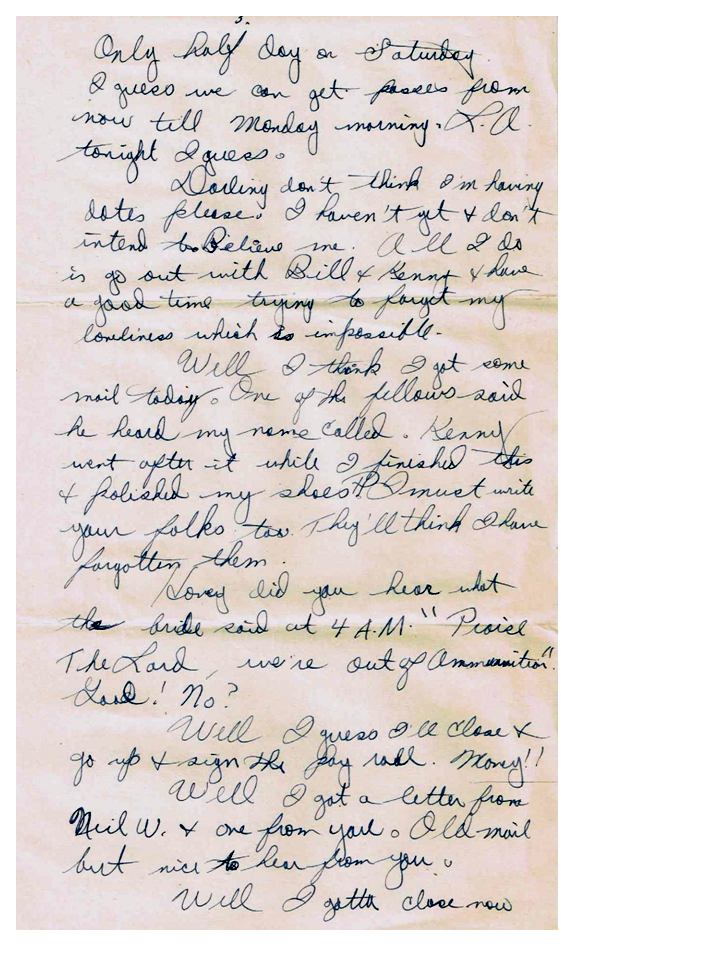 3.
Only half day on Saturday.
I guess we can get passes from
now till Monday morning. L.A.
tonight I guess.
Darling don't think I'm having
dates please. I haven't yet & don't
intend to. Believe me. All I do
is go out with Bill & Kenny & have
a good time trying to forget my
loneliness which is impossible.
Well I think I got some
mail today. One of the fellows said
he heard my name called. Kenny
went after it while I finished this
& polished my shoes!! I must write
your folks too. They'll think I have
forgotten them.
Honey did you hear what
the bride said at 4 A.M. "Praise
The Lord, we're out of Ammunition".
Good! No?
Well I guess I'll close &
go up & sign the pay roll. Money!!
Well I got a letter from
Neil W. & one from you. Old mail
but nice to hear from you.
Well I gotta close now